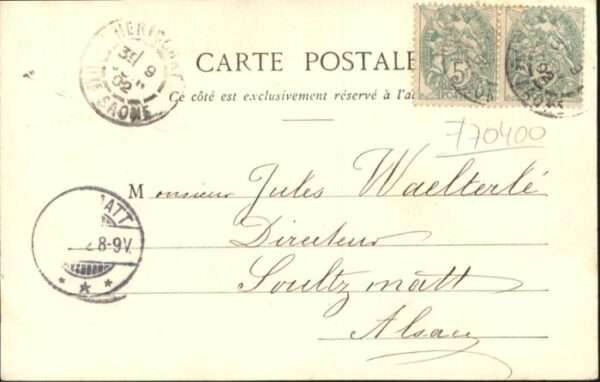 HERICOURT
3E 9
02
HTE SAONE
CARTE POSTALE
Ce côté est exclusivement réservé à l'a
5
02
770400
Monsieur Jules Waelterlé
Directeur
Soultzmatt
Alsace
ATT
2 8-9V.